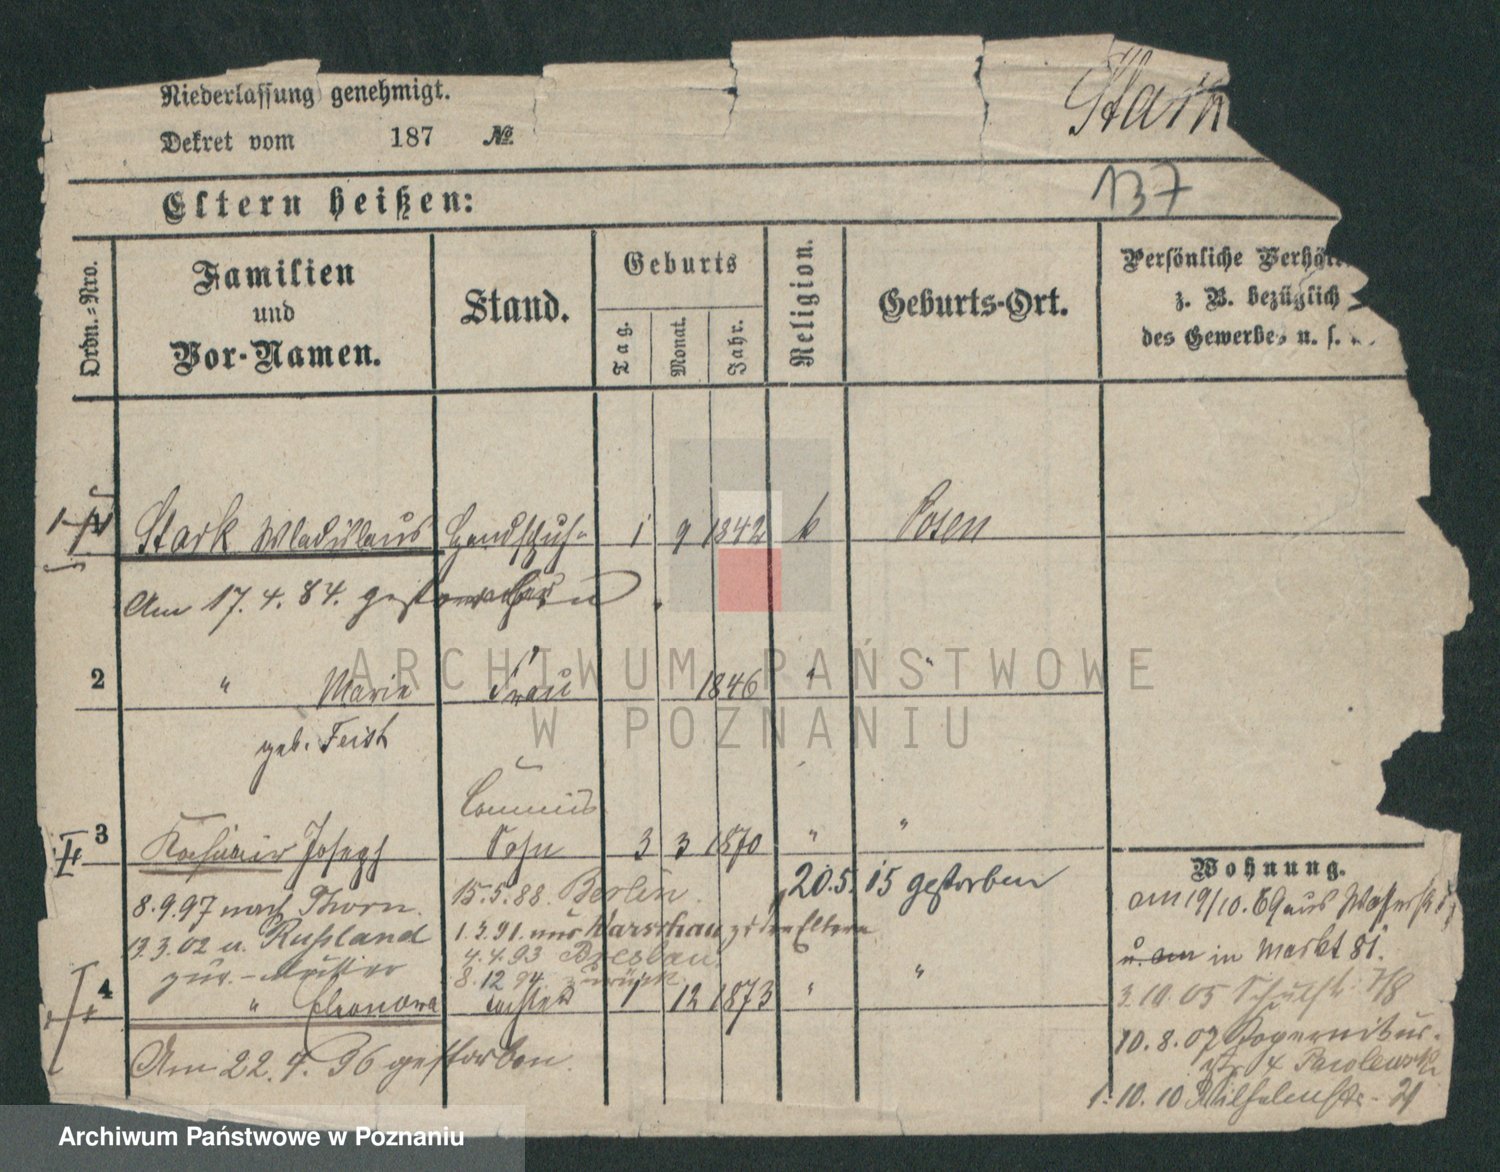 Niederlassung genehmigt.
Stark
Dekret vom 187 №
137
Eltern heißen:
Ordn.-Nro.
Familien
und
Vor-Namen.
Stand.
Geburts
Tag.
Monat.
Jahr.
Religion.
Geburts-Ort.
Persönliche Verhält
z. B. bezüglich
des Gewerbes u. s.
1 Stark Wladislaus Handschuh- 1 9 1842 k Posen
macher
Am 17.4.84. gestorben
2 " Marie Frau 1846 " "
geb. Feist
Commis
3 Kasimir Joseph Sohn 3 3 1870 " "
8.9.97 nach Thorn.
15.5.88. Berlin.
20.5.15 gestorben
13.3.02 u. Russland
1.3.91. aus Warschau zu den Eltern
4.4.93 Breslau
zur. - Mutter
8.12.94. zurück
4 " Eleonora Tochter 1 12 1873 " "
Am 22.4.96 gestorben.
Wohnung.
am 19/10. 69 aus
u. am in Markt 81.
3.10.05 7/8
10.8.07 Kopernikus-
str 4
1.10.10 Wilhelmstr. 21
ARCHIWUM PAŃSTWOWE
W POZNANIU
Archiwum Państwowe w Poznaniu